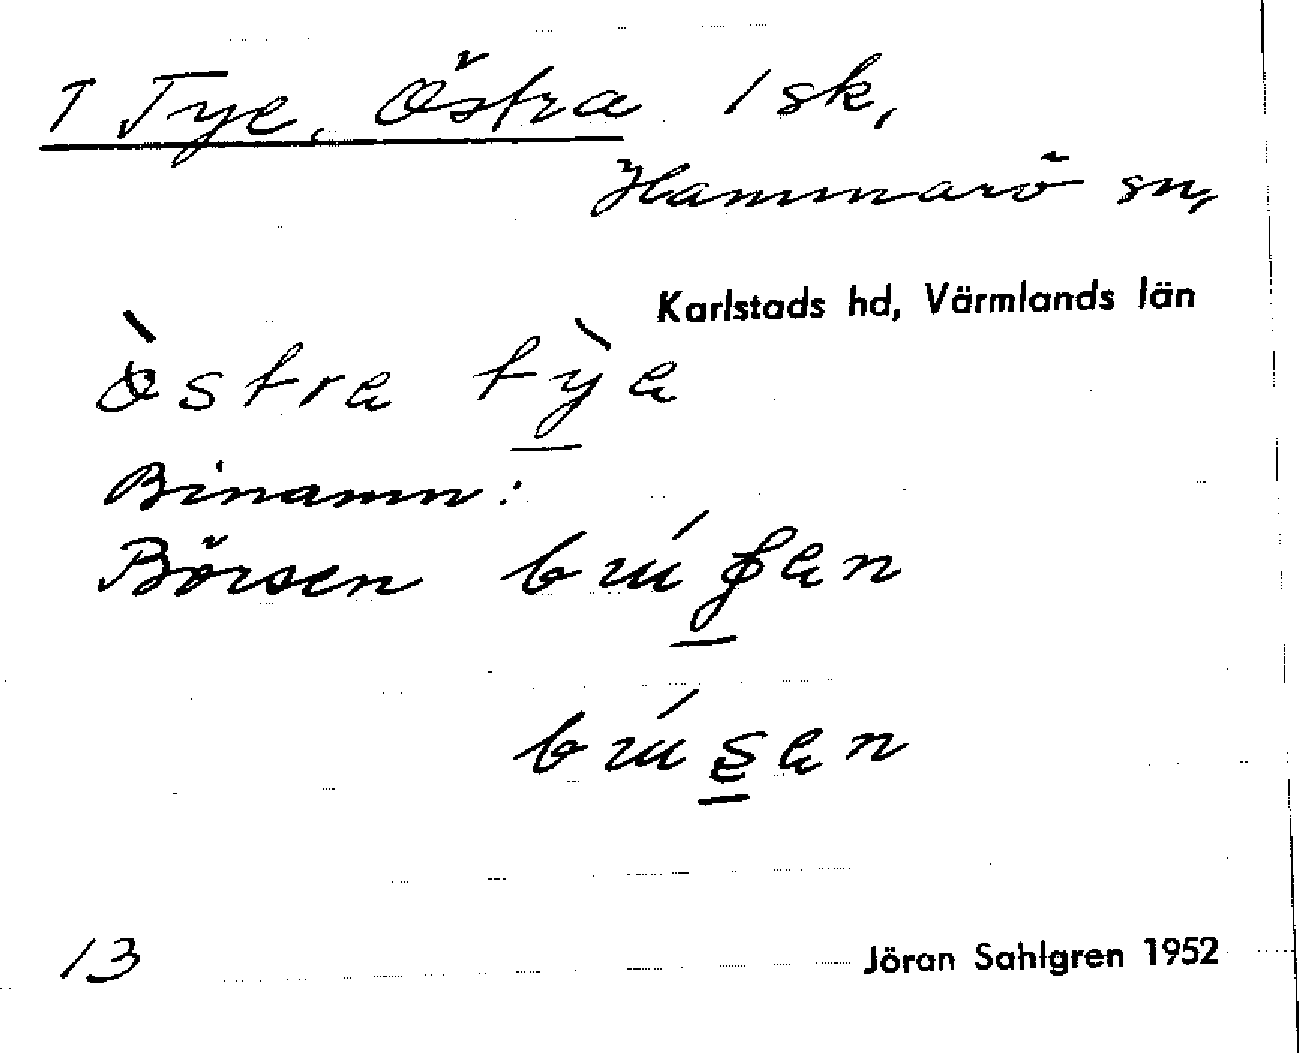 1 Tye, Östra 1 sk,
Hammarö sn,
Karlstads hd, Värmlands län
òstra tỳa
Binamn:
Börsen
13
Jöran Sahlgren 1952